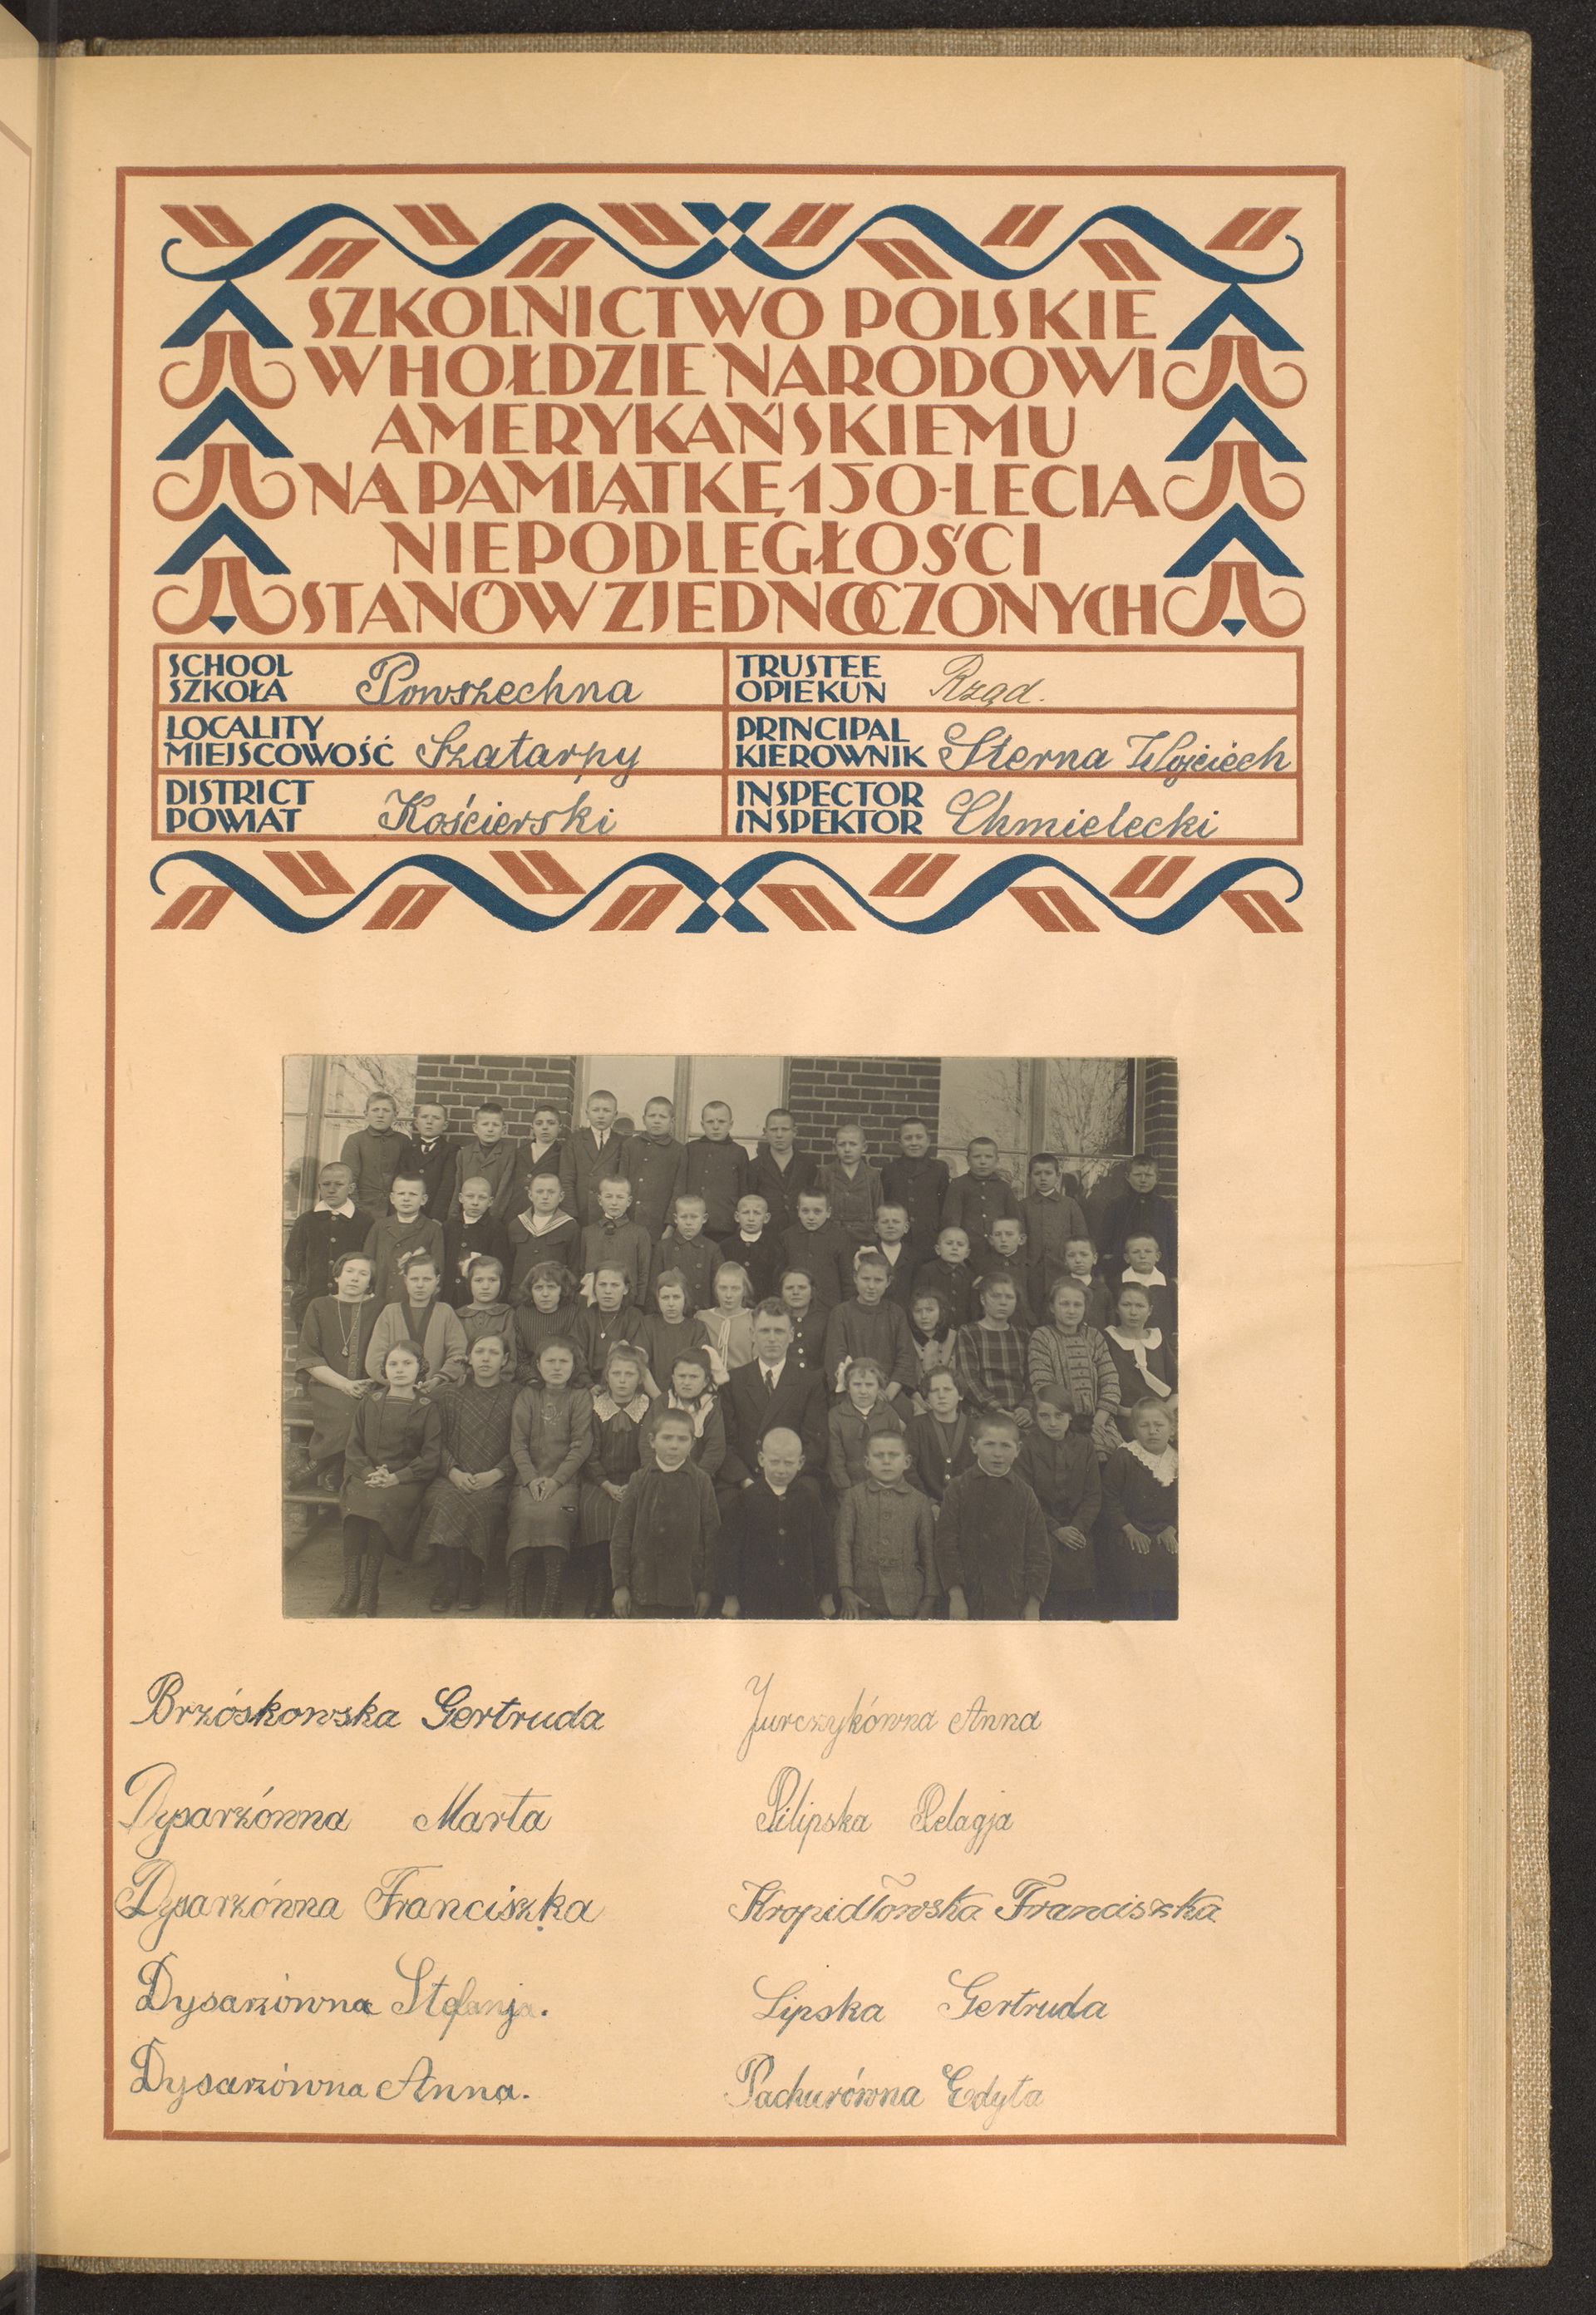 SZKOLNICTWO POLSKIE
W HOŁDZIE NARODOWI
AMERYKAŃSKIEMU
NA PAMIĄTKĘ 150-LECIA
NIEPODLEGŁOŚCI
STANÓW ZJEDNOCZONYCH
SCHOOL
SZKOŁA Powszechna
TRUSTEE
OPIEKUN Rząd.
LOCALITY
MIEJSCOWOŚĆ Szatarpy
PRINCIPAL
KIEROWNIK Sterna Wojciech
DISTRICT
POWIAT Kościerski
INSPECTOR
INSPEKTOR Chmielecki
Brzóskowska Gertruda
Dysarzówna Marta
Dysarzówna Franciszka
Dysarzówna Stefanja.
Dysarzówna Anna.
Jurczykówna Anna
Pilipska Pelagja
Kropidłowska Franciszka
Lipska Gertruda
Pachurówna Edyta